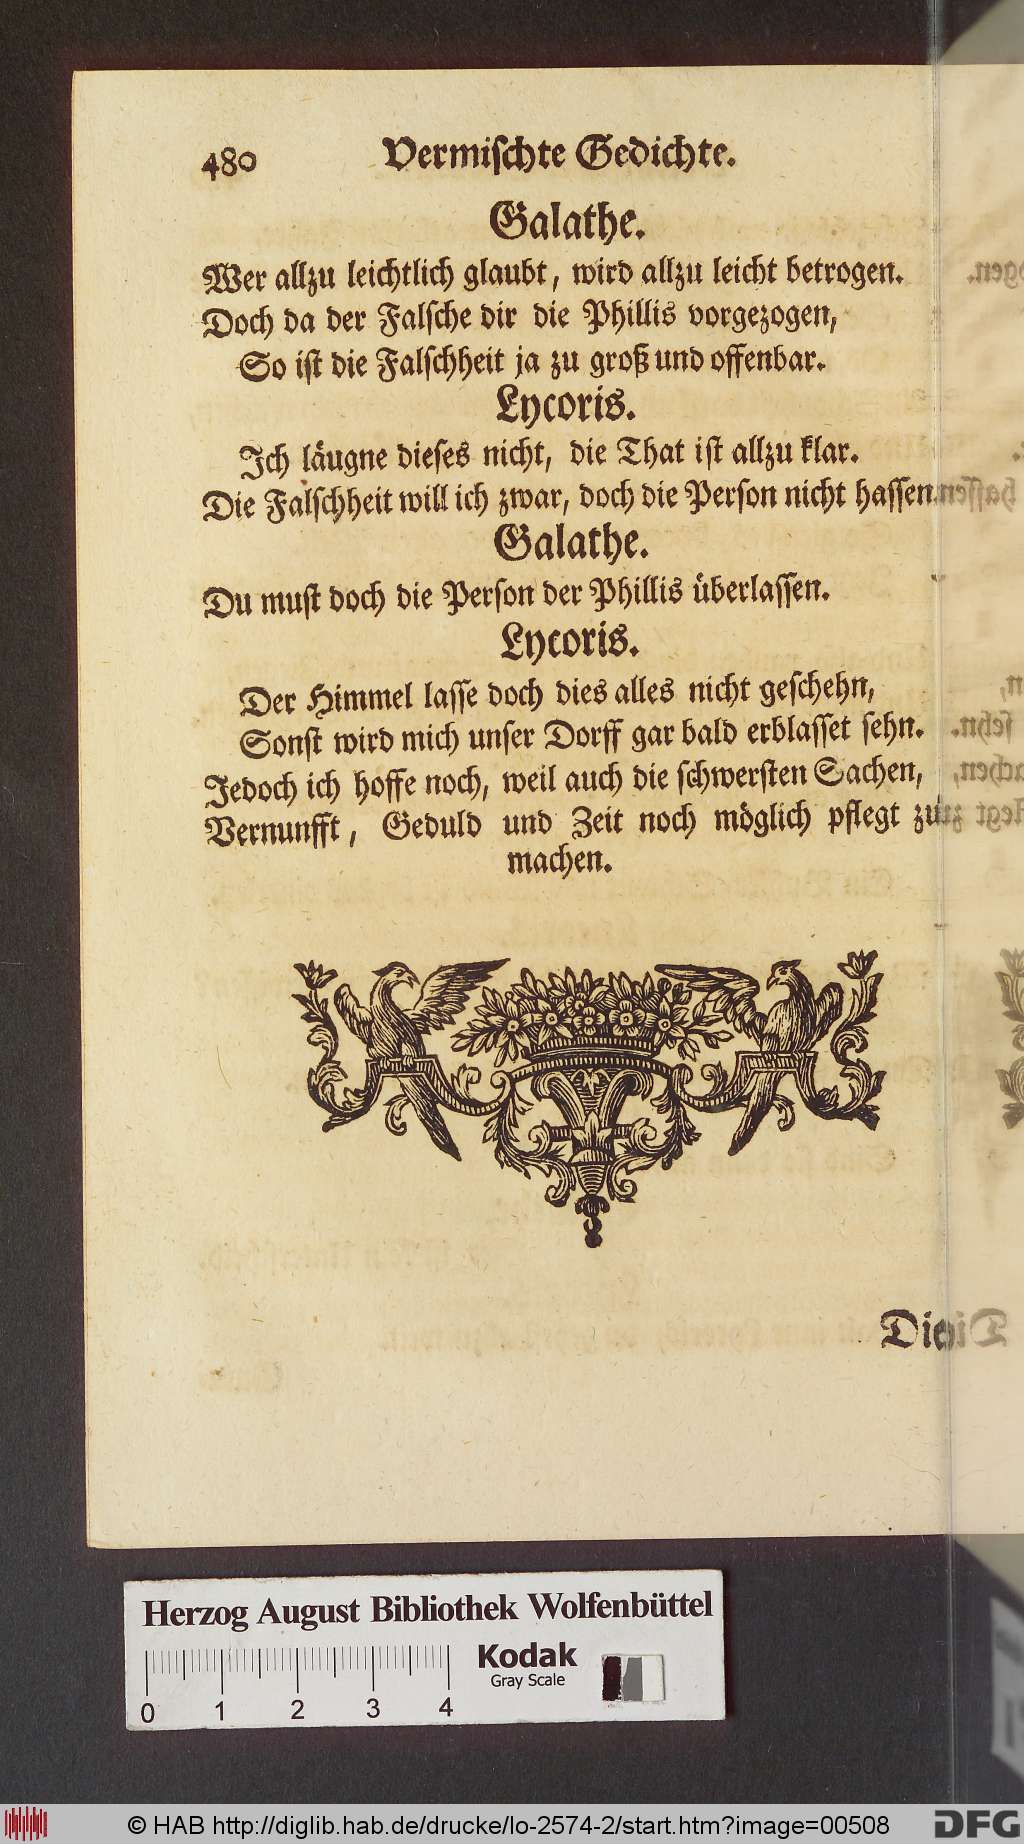 480 Vermischte Gedichte.
Galathe.
Wer allzu leichtlich glaubt, wird allzu leicht betrogen.
Doch da der Falsche dir die Phillis vorgezogen,
So ist die Falschheit ja zu groß und offenbar.
Lycoris.
Ich läugne dieses nicht, die That ist allzu klar.
Die Falschheit will ich zwar, doch die Person nicht hassen.
Galathe.
Du must doch die Person der Phillis überlassen.
Lycoris.
Der Himmel lasse doch dies alles nicht geschehn,
Sonst wird mich unser Dorff gar bald erblasset sehn.
Jedoch ich hoffe noch, weil auch die schwersten Sachen,
Vernunfft, Geduld und Zeit noch möglich pflegt zu
machen.
Die
Herzog August Bibliothek Wolfenbüttel
Kodak
Gray Scale
0 1 2 3 4
© HAB http://diglib.hab.de/drucke/lo-2574-2/start.htm?image=00508
DFG